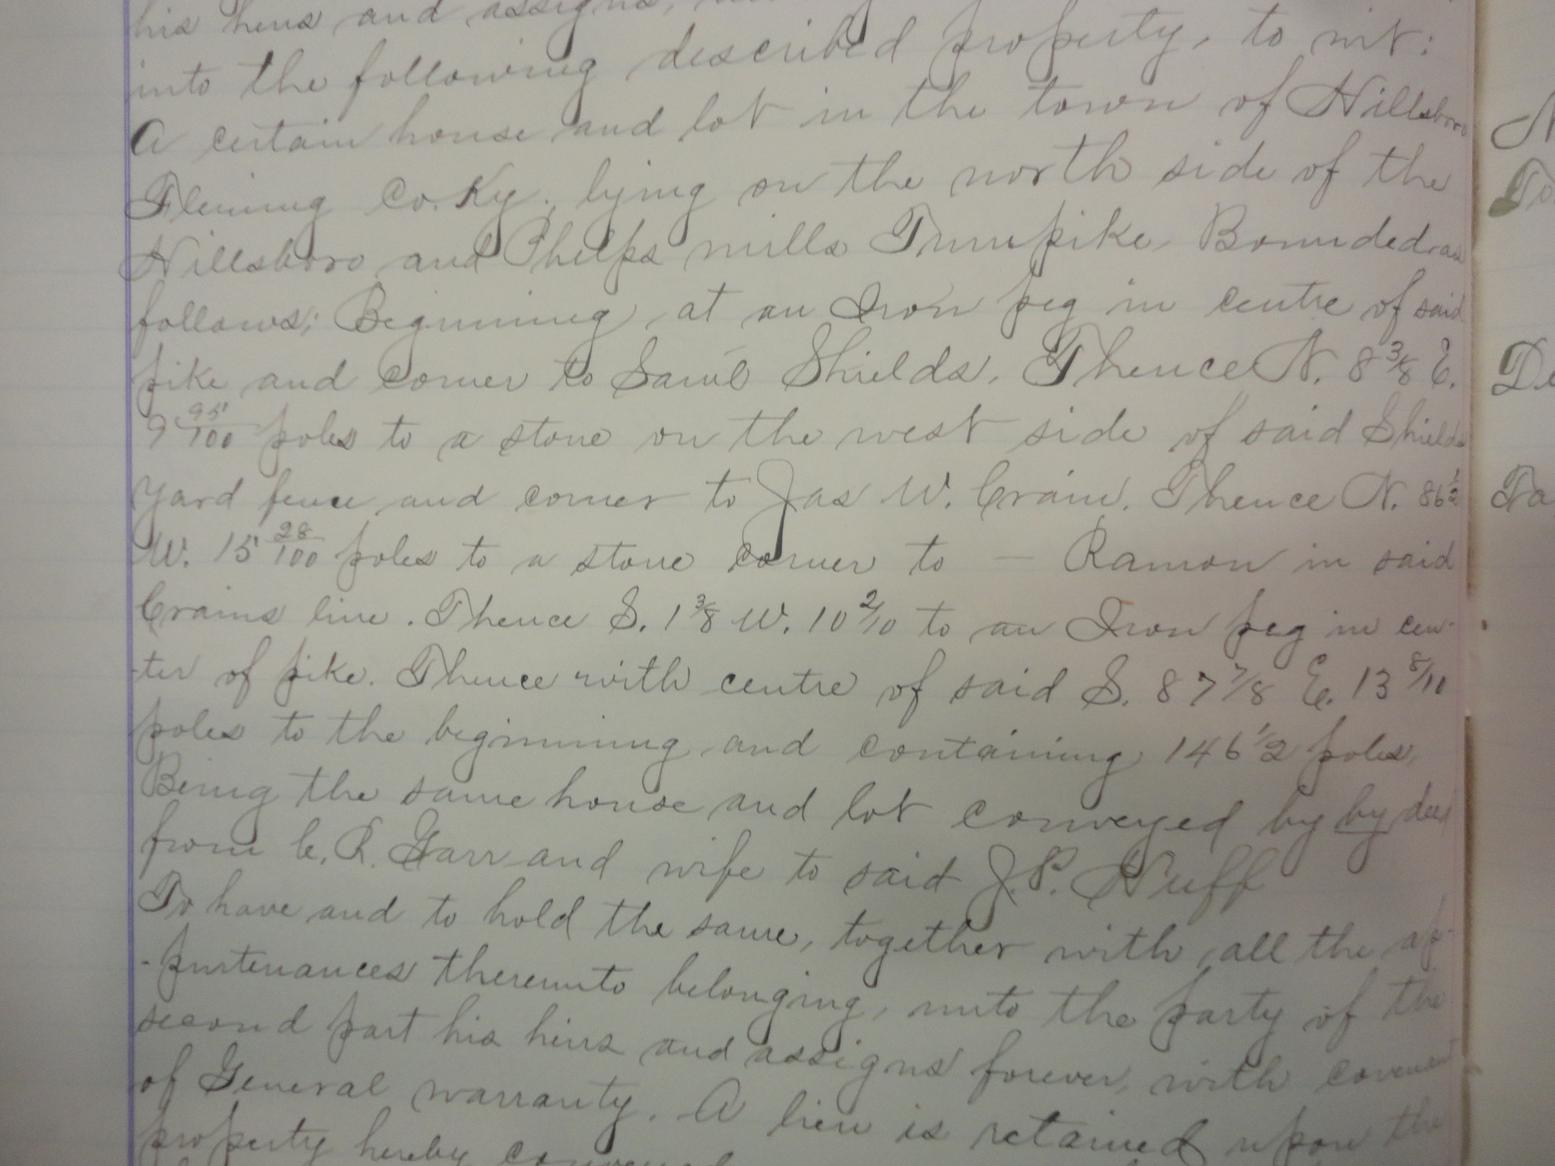 his heirs and assigns,
into the following described property, to wit:
A certain house and lot in the town of Hillsboro
Fleming Co. Ky., lying on the north side of the
Hillsboro and Phelps mills Turnpike, Bounded as
follows; Beginning at an Iron peg in centre of said
pike and corner to Saml Shields. Thence N. 8 3/8 E.
9 95/100 poles to a stone on the west side of said Shields
yard fence and corner to Jas W. Crain. Thence N. 86 1/2
W. 15 28/100 poles to a stone corner to — Ramon in said
Crains line. Thence S. 1 3/8 W. 10 2/10 to an Iron peg in cen-
-ter of pike. Thence with centre of said S. 87 7/8 E. 13 8/10
poles to the beginning and containing 146 1/2 poles,
Being the same house and lot conveyed by by deed
from C. R. Garr and wife to said J. P. Huff
To have and to hold the same, together with all the ap-
-purtenances thereunto belonging, unto the party of the
second part his heirs and assigns forever, with covenant
of General warranty. A lien is retained upon the
property hereby conveyed
De